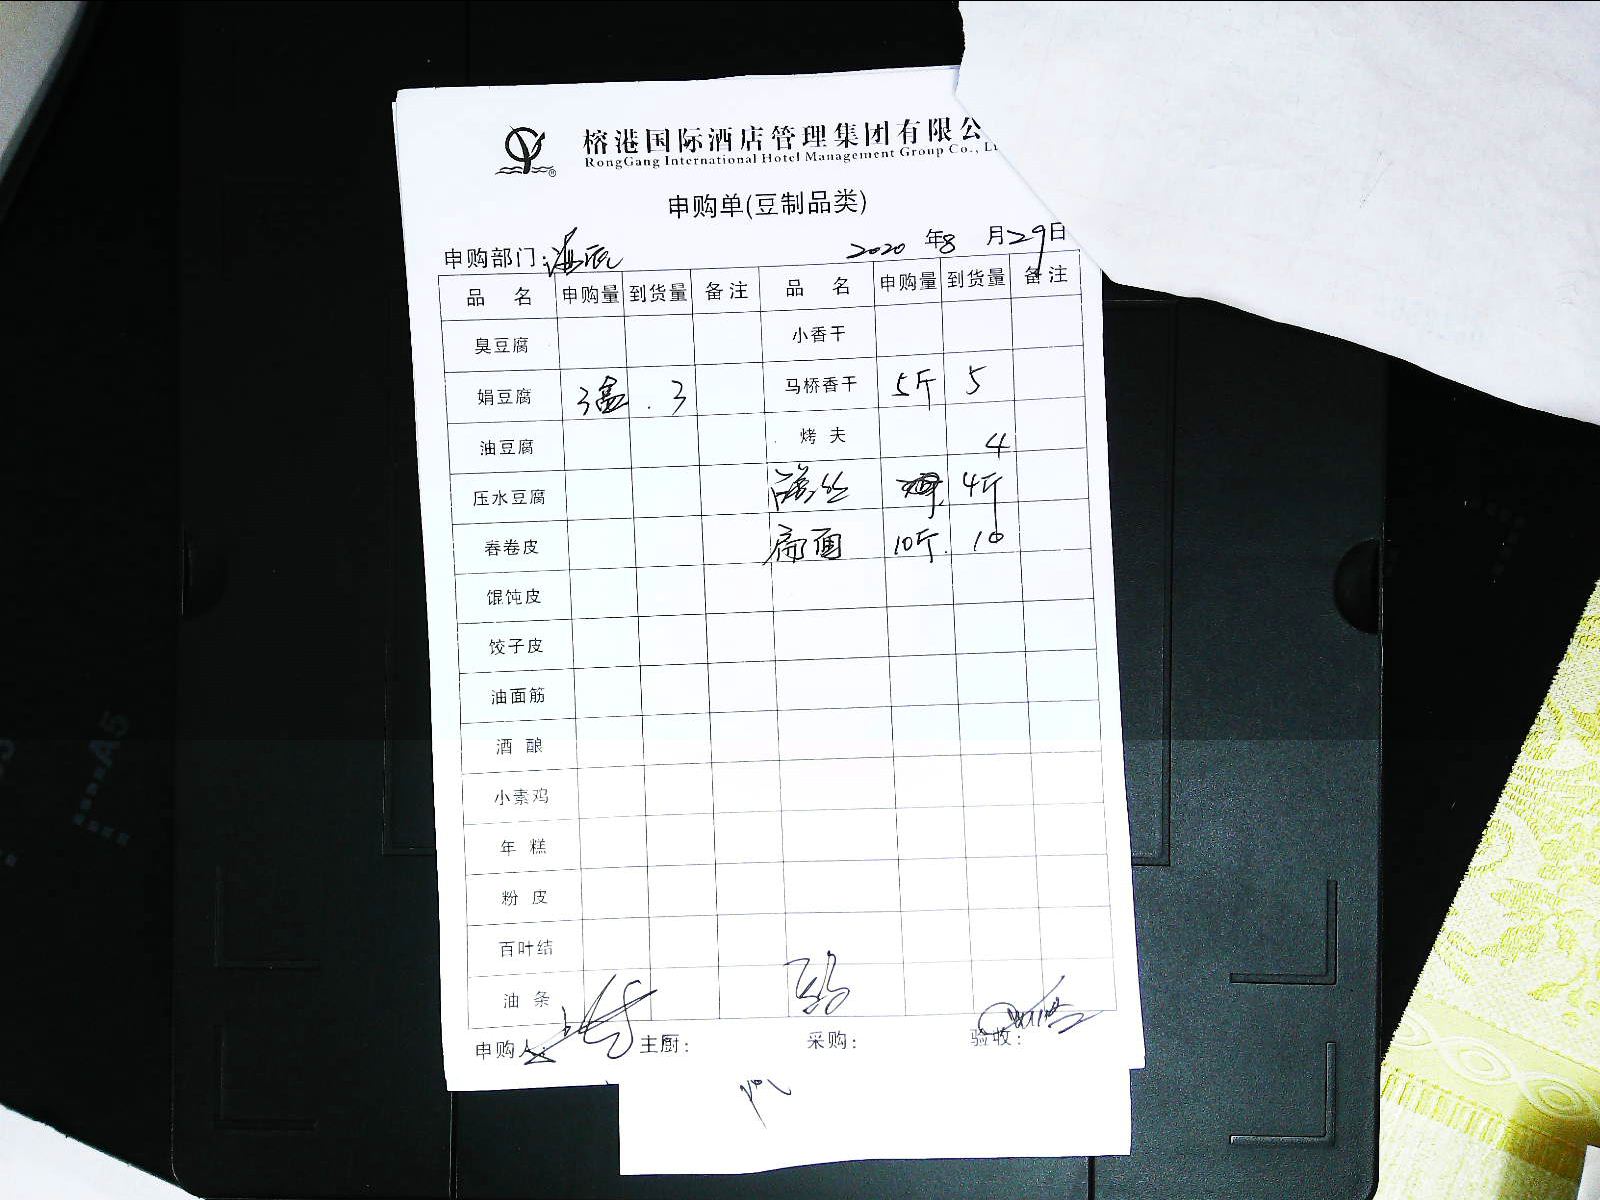 榕港国际酒店管理集团有限公
RongGang International Hotel Management Group Co., Lt
申购单(豆制品类)
申购部门: 2020 年8 月29日
品 名 申购量 到货量 备注 品 名 申购量 到货量 备注
臭豆腐 小香干
娟豆腐 3盒 3 马桥香干 5斤 5
油豆腐 烤 夫 4
压水豆腐 丝 4斤
春卷皮 扁面 10斤 10
馄饨皮
饺子皮
油面筋
酒 酿
小素鸡
年 糕
粉 皮
百叶结
油 条
申购人: 主厨: 采购: 验收:
A5